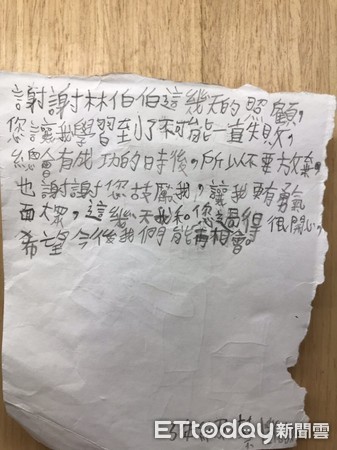 謝謝林伯伯這幾天的照顧,
您讓我學習至了不可能一直失敗,
總會有成功的時後,所以不要放棄。
也謝謝您鼓厲我,讓我有勇氣
面大眾,這幾天我和您過得很開心,
希望今後我們能再相會。
ETtoday新聞雲